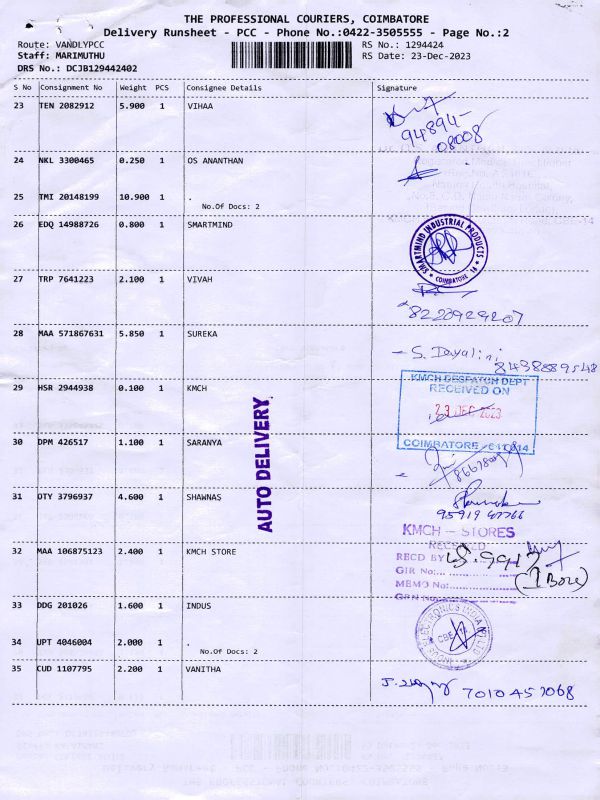 THE PROFESSIONAL COURIERS, COIMBATORE
Delivery Runsheet - PCC - Phone No.:0422-3505555 - Page No.:2
Route: VANDLYPCC RS No.: 1294424
Staff: MARIMUTHU RS Date: 23-Dec-2023
DRS No.: DCJB129442402
S No Consignment No Weight PCS Consignee Details Signature
23 TEN 2082912 5.900 1 VIHAA
94894-
08008
24 NKL 3300465 0.250 1 OS ANANTHAN
25 TMI 20148199 10.900 1 .
No.Of Docs: 2
26 EDQ 14988726 0.800 1 SMARTMIND
SMARTMIND INDUSTRIAL PRODUCTS
COIMBATORE - 14
27 TRP 7641223 2.100 1 VIVAH
8220929207
28 MAA 571867631 5.850 1 SUREKA
- S. Dayalini
8438889548
29 HSR 2944938 0.100 1 KMCH
KMCH DESPATCH DEPT
RECEIVED ON
23 DEC 2023
COIMBATORE - 641 014
AUTO DELIVERY
30 DPM 426517 1.100 1 SARANYA
31 OTY 3796937 4.600 1 SHAWNAS
95919 47766
32 MAA 106875123 2.400 1 KMCH STORE
KMCH - STORES
RECEIVED
RECD BY
GIR No:...
MEMO No:
GRN No
(1 Box)
33 DDG 201026 1.600 1 INDUS
34 UPT 4046004 2.000 1 .
No.Of Docs: 2
35 CUD 1107795 2.200 1 VANITHA
7010457068